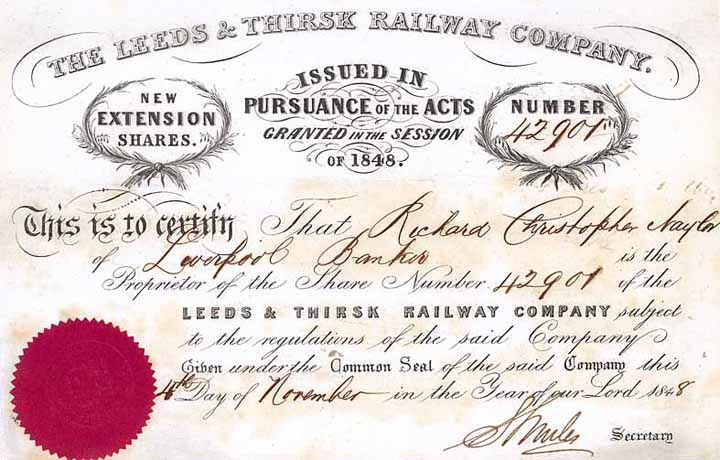 THE LEEDS & THIRSK RAILWAY COMPANY.
NEW
EXTENSION
SHARES.
ISSUED IN
PURSUANCE OF THE ACTS
GRANTED IN THE SESSION
OF 1848.
NUMBER
42901
This is to certify That Richard Christopher Naylor
of Liverpool Banker is the
Proprietor of the Share Number 42901 of the
LEEDS & THIRSK RAILWAY COMPANY subject
to the regulations of the said Company
Given under the Common Seal of the said Company this
4th Day of November in the Year of our Lord 1848
S Smiles Secretary